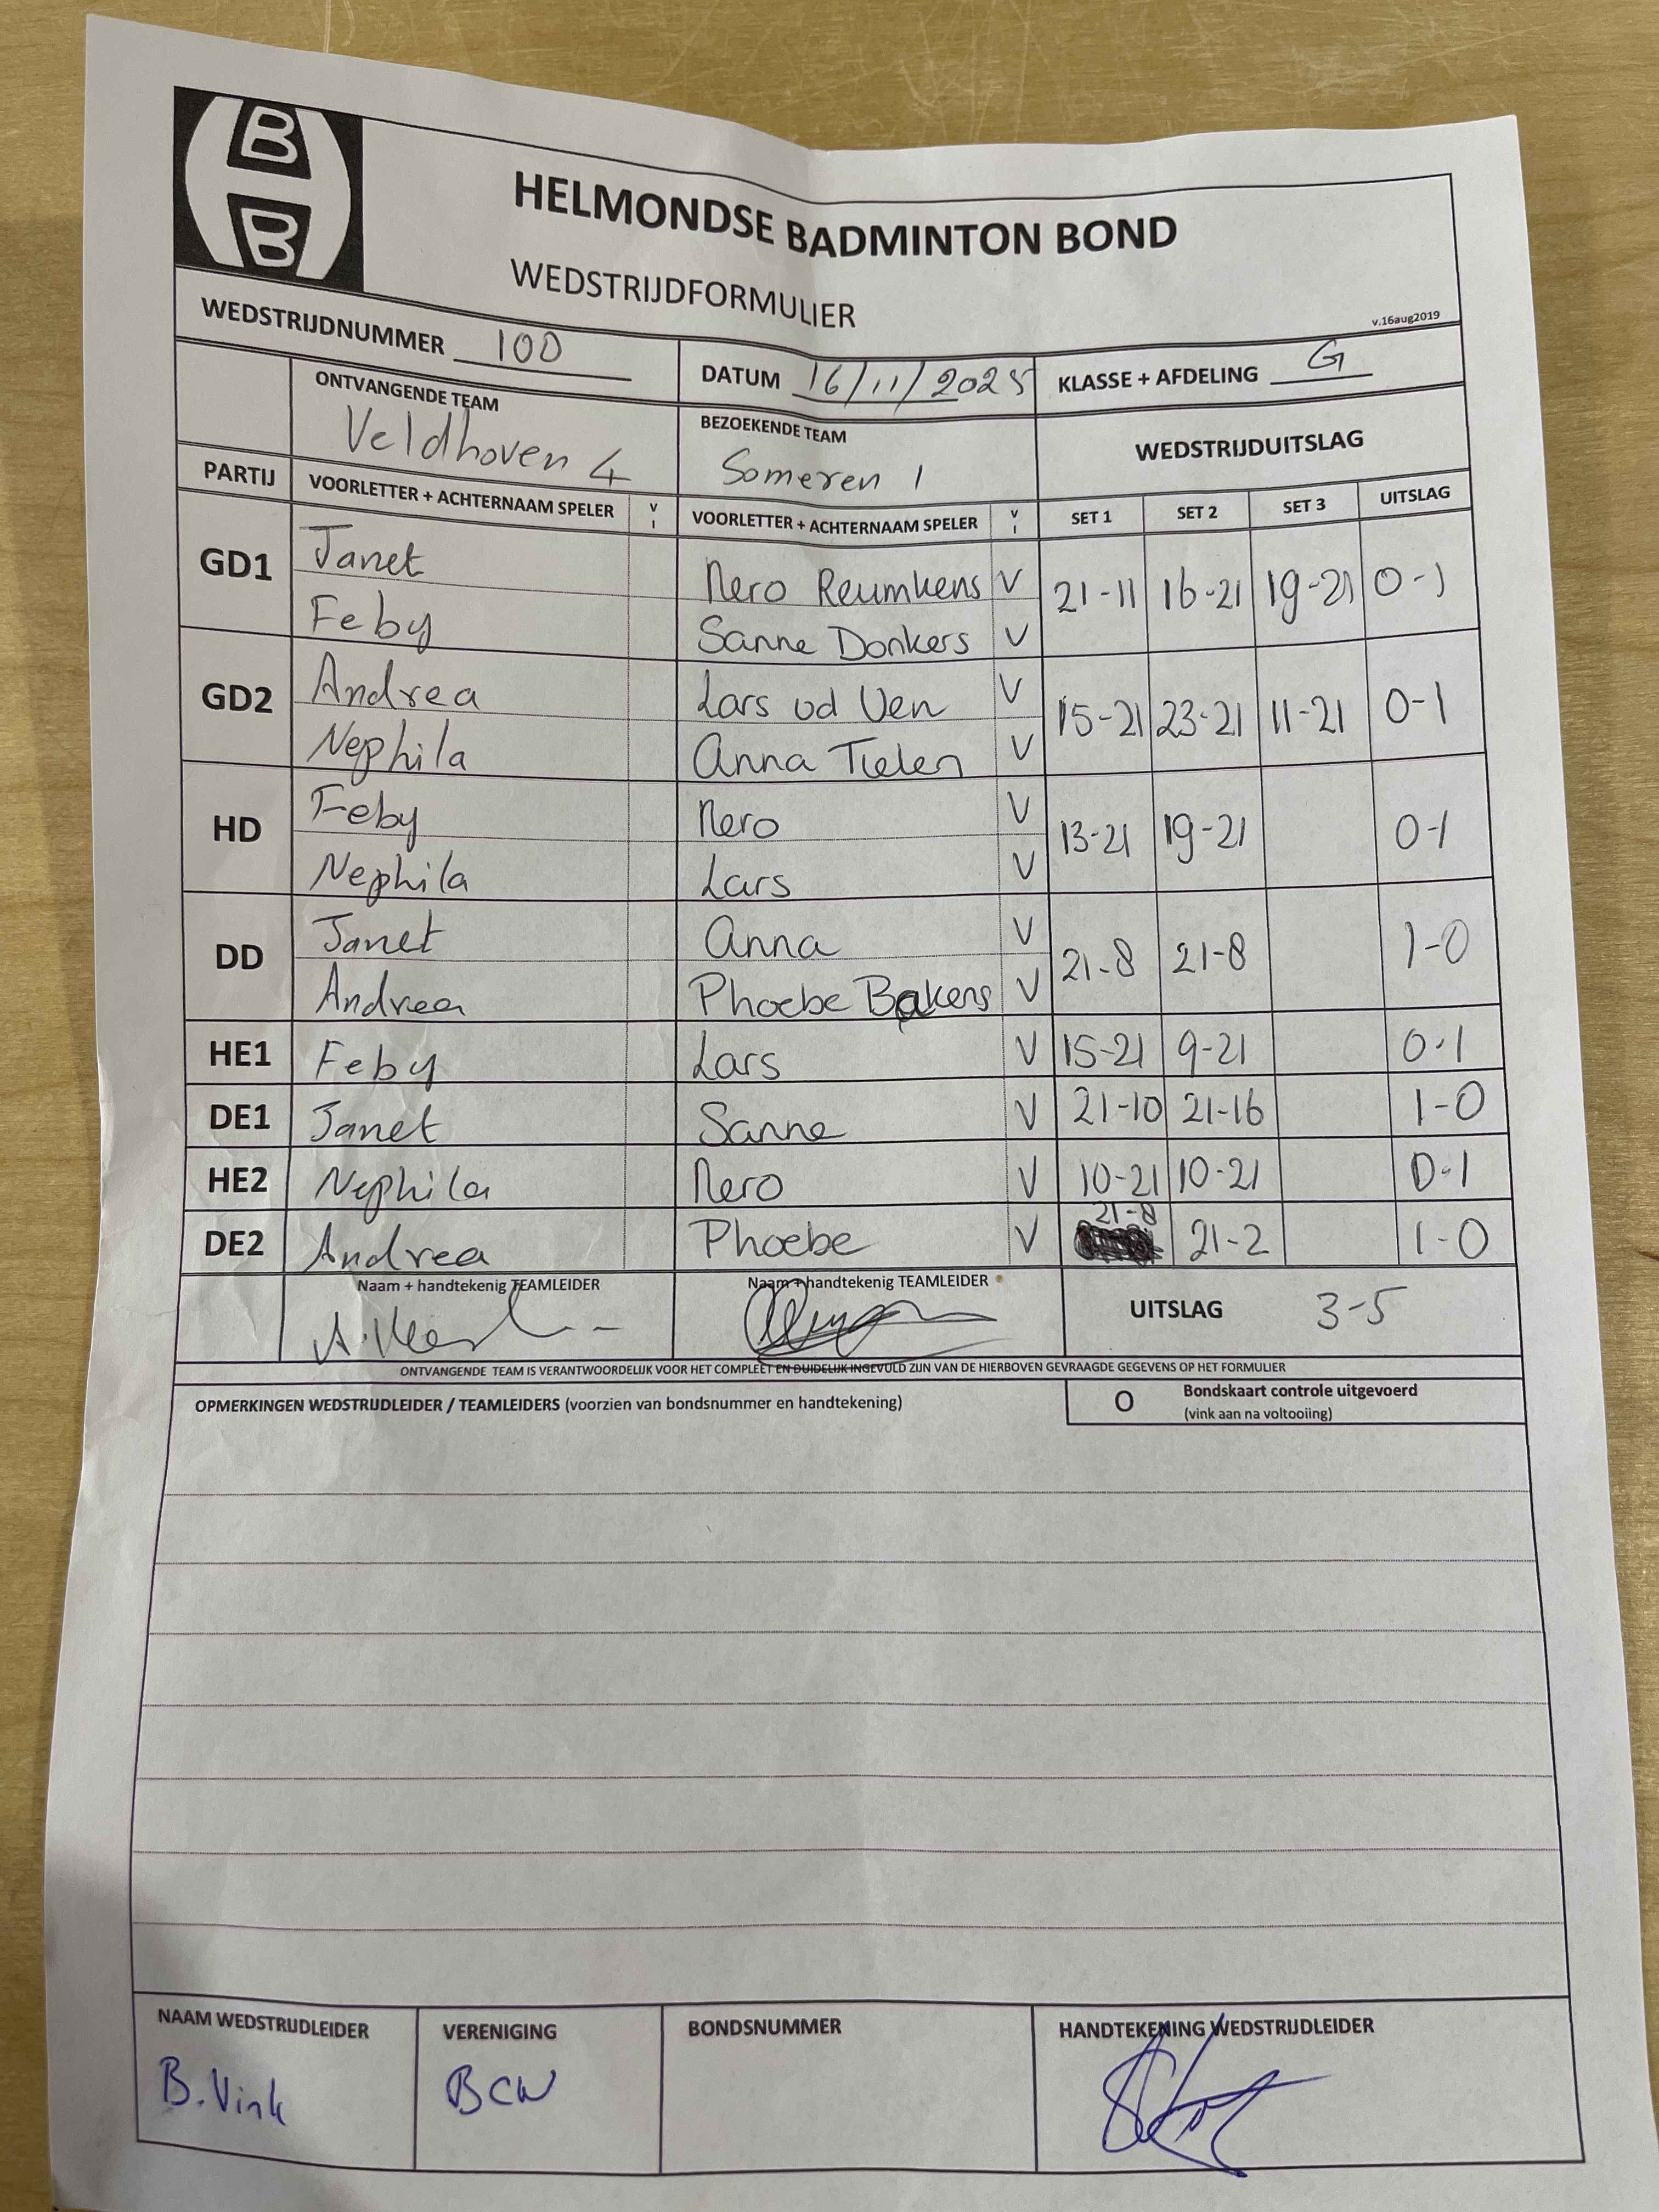 B
B
HELMONDSE BADMINTON BOND
WEDSTRIJDFORMULIER
v.16aug2019
WEDSTRIJDNUMMER 100 DATUM 16/11/2025 KLASSE + AFDELING G
ONTVANGENDE TEAM BEZOEKENDE TEAM WEDSTRIJDUITSLAG
Veldhoven 4 Someren 1
PARTIJ VOORLETTER + ACHTERNAAM SPELER V I VOORLETTER + ACHTERNAAM SPELER V I SET 1 SET 2 SET 3 UITSLAG
GD1 Janet Nero Reumkens V 21-11 16-21 19-21 0-1
Feby Sanne Donkers V
GD2 Andrea Lars vd Ven V 15-21 23-21 11-21 0-1
Nephila Anna Tielen V
HD Feby Nero V 13-21 19-21 0-1
Nephila Lars V
DD Janet Anna V 21-8 21-8 1-0
Andrea Phoebe Bakens V
HE1 Feby Lars V 15-21 9-21 0-1
DE1 Janet Sanne V 21-10 21-16 1-0
HE2 Nephila Nero V 10-21 10-21 0-1
DE2 Andrea Phoebe V 21-8 21-2 1-0
Naam + handtekenig TEAMLEIDER Naam + handtekenig TEAMLEIDER UITSLAG 3-5
ONTVANGENDE TEAM IS VERANTWOORDELIJK VOOR HET COMPLEET EN DUIDELIJK INGEVULD ZIJN VAN DE HIERBOVEN GEVRAAGDE GEGEVENS OP HET FORMULIER
OPMERKINGEN WEDSTRIJDLEIDER / TEAMLEIDERS (voorzien van bondsnummer en handtekening) O Bondskaart controle uitgevoerd
(vink aan na voltooiing)
NAAM WEDSTRIJDLEIDER VERENIGING BONDSNUMMER HANDTEKENING WEDSTRIJDLEIDER
B. Vink BCW